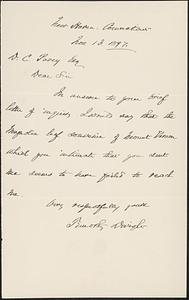 New Haven. Connecticut
Nov 13. 1897.
D. C. Pavey Esq
Dear Sir
In answer to your brief
letter of inquiry I would say that the
Magnolia leaf souvenir of Mount Vernon
which you intimate that you sent
me seems to have failed to reach
me.
Very respectfully yours
Timothy Dwight